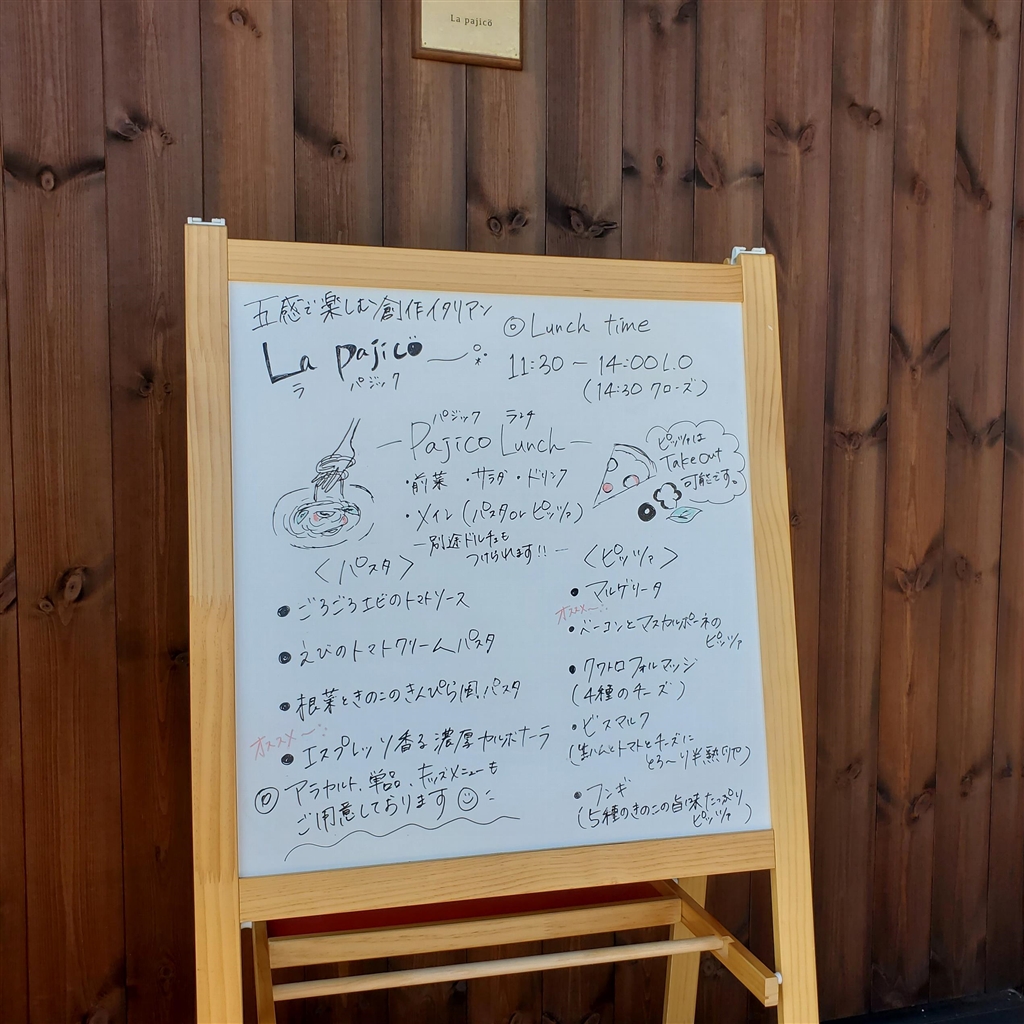 La pajicö
五感で楽しむ創作イタリアン
La pajicö
ラ パジック
◎Lunch time
11:30 ~ 14:00 L.O
(14:30 クローズ)
パジック ランチ
Pajico Lunch
・前菜 ・サラダ ・ドリンク
・メイン (パスタ or ピッツァ)
別途ドルチェも
つけられます!!
ピッツァは
Take out
可能です。
<パスタ>
●ごろごろエビのトマトソース
●えびのトマトクリームパスタ
●根菜ときのこのきんぴら風パスタ
オススメ〜
●エスプレッソ香る濃厚カルボナーラ
◎アラカルト、単品、キッズメニューも
ご用意しております
<ピッツァ>
●マルゲリータ
オススメ〜
●ベーコンとマスカルポーネの
ピッツァ
●クワトロフォルマッジ
(4種のチーズ)
●ビスマルク
(生ハムとトマトとチーズに
とろ〜り半熟卵)
●フンギ
(5種のきのこの旨味たっぷり
ピッツァ)